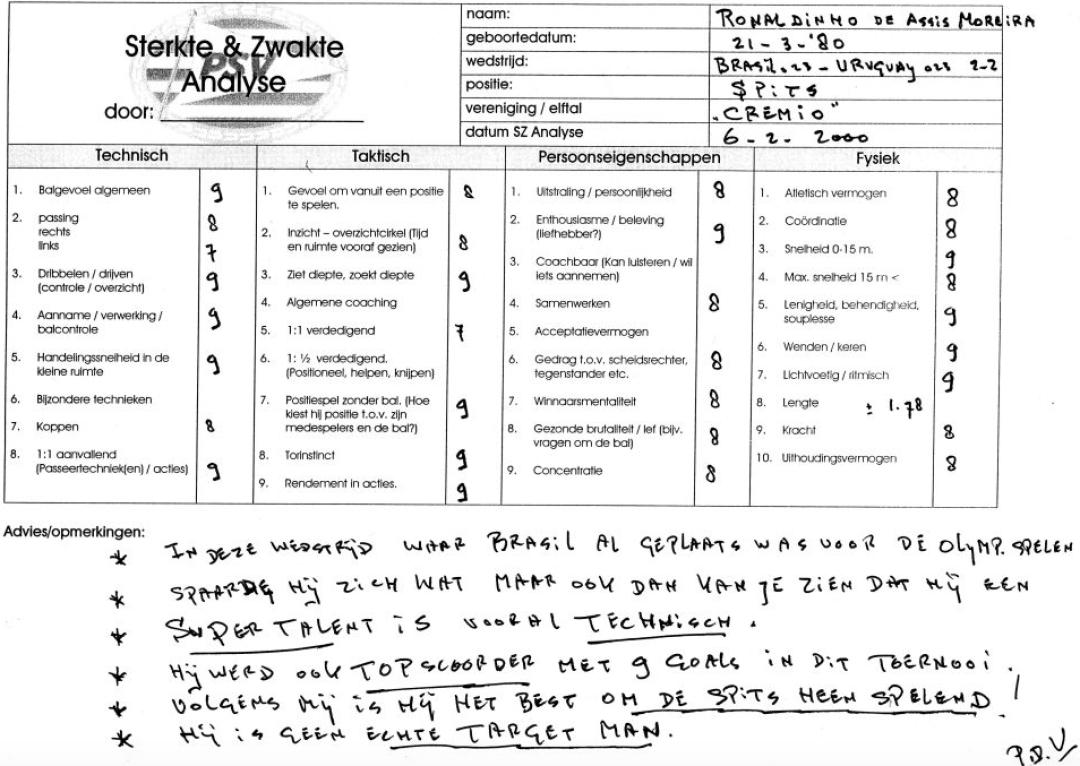 Sterkte & Zwakte
PSV
Analyse
door:
naam: RONALDINHO DE ASSIS MOREIRA
geboortedatum: 21-3-'80
wedstrijd: BRASIL.o23 - URUGUAY o23 2-2
positie: SPITS
vereniging / elftal "CREMIO"
datum SZ Analyse 6-2-2000
Technisch
1. Balgevoel algemeen 9
2. passing
rechts 8
links 7
3. Dribbelen / drijven
(controle / overzicht) 9
4. Aanname / verwerking /
balcontrole 9
5. Handelingssnelheid in de
kleine ruimte 9
6. Bijzondere technieken
7. Koppen 8
8. 1:1 aanvallend
(Passeertechniek(en) / acties) 9
Taktisch
1. Gevoel om vanuit een positie
te spelen. 8
2. Inzicht – overzichtcirkel (Tijd
en ruimte vooraf gezien) 8
3. Ziet diepte, zoekt diepte 9
4. Algemene coaching
5. 1:1 verdedigend 7
6. 1: ½ verdedigend.
(Positioneel, helpen, knijpen)
7. Positiespel zonder bal. (Hoe
kiest hij positie t.o.v. zijn
medespelers en de bal?) 9
8. Torinstinct 9
9. Rendement in acties. 9
Persoonseigenschappen
1. Uitstraling / persoonlijkheid 8
2. Enthousiasme / beleving
(liefhebber?) 9
3. Coachbaar (Kan luisteren / wil
iets aannemen)
4. Samenwerken 8
5. Acceptatievermogen
6. Gedrag t.o.v. scheidsrechter,
tegenstander etc. 8
7. Winnaarsmentaliteit 8
8. Gezonde brutaliteit / lef (bijv.
vragen om de bal) 8
9. Concentratie 8
Fysiek
1. Atletisch vermogen 8
2. Coördinatie 8
3. Snelheid 0-15 m. 9
4. Max. snelheid 15 m < 8
5. Lenigheid, behendigheid,
souplesse 9
6. Wenden / keren 9
7. Lichtvoetig / ritmisch 9
8. Lengte ± 1.78
9. Kracht 8
10. Uithoudingsvermogen 8
Advies/opmerkingen:
* IN DEZE WEDSTRIJD WAAR BRASIL AL GEPLAATS WAS VOOR DE OLYMP. SPELEN
* SPAARDE HIJ ZICH WAT MAAR OOK DAN KAN JE ZIEN DAT HIJ EEN
* SUPER TALENT IS VOORAL TECHNISCH.
* HIJ WERD OOK TOPSCOORDER MET 9 GOALS IN DIT TOERNOOI.
* VOLGENS MIJ IS HIJ HET BEST OM DE SPITS HEEN SPELEND!
* HIJ IS GEEN ECHTE TARGET MAN.
P.D.V